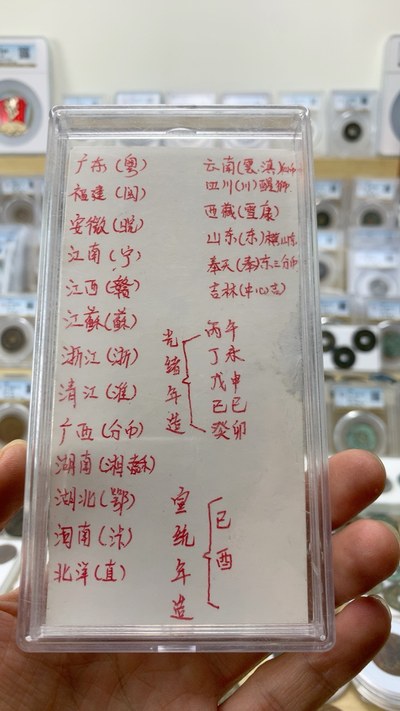 广东(粤)
福建(闽)
安徽(皖)
江南(宁)
江西(赣)
江蘇(蘇)
浙江(浙)
清江(淮)
广西(分币)
湖南(湘
湖北(鄂)
河南(汴)
北洋(直)
云南(
四川(川)醒狮
西藏(雪康)
山东(东)
奉天(奉)东三分币
吉林(中心吉)
光绪年造
丙午
丁未
戊申
己巳
癸卯
宣统年造
己酉